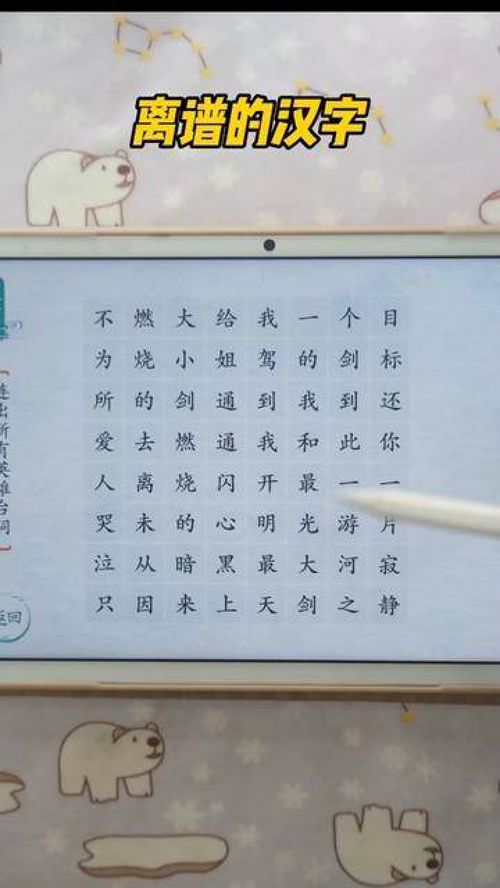 离谱的汉字
连出所有英雄台词
不燃大给我一个目
为烧小姐驾的剑标
所的剑通到我到还
爱去燃通我和此你
人离烧闪开最一一
哭未的心明光游片
泣从暗黑最大河寂
只因来上天剑之静
返回